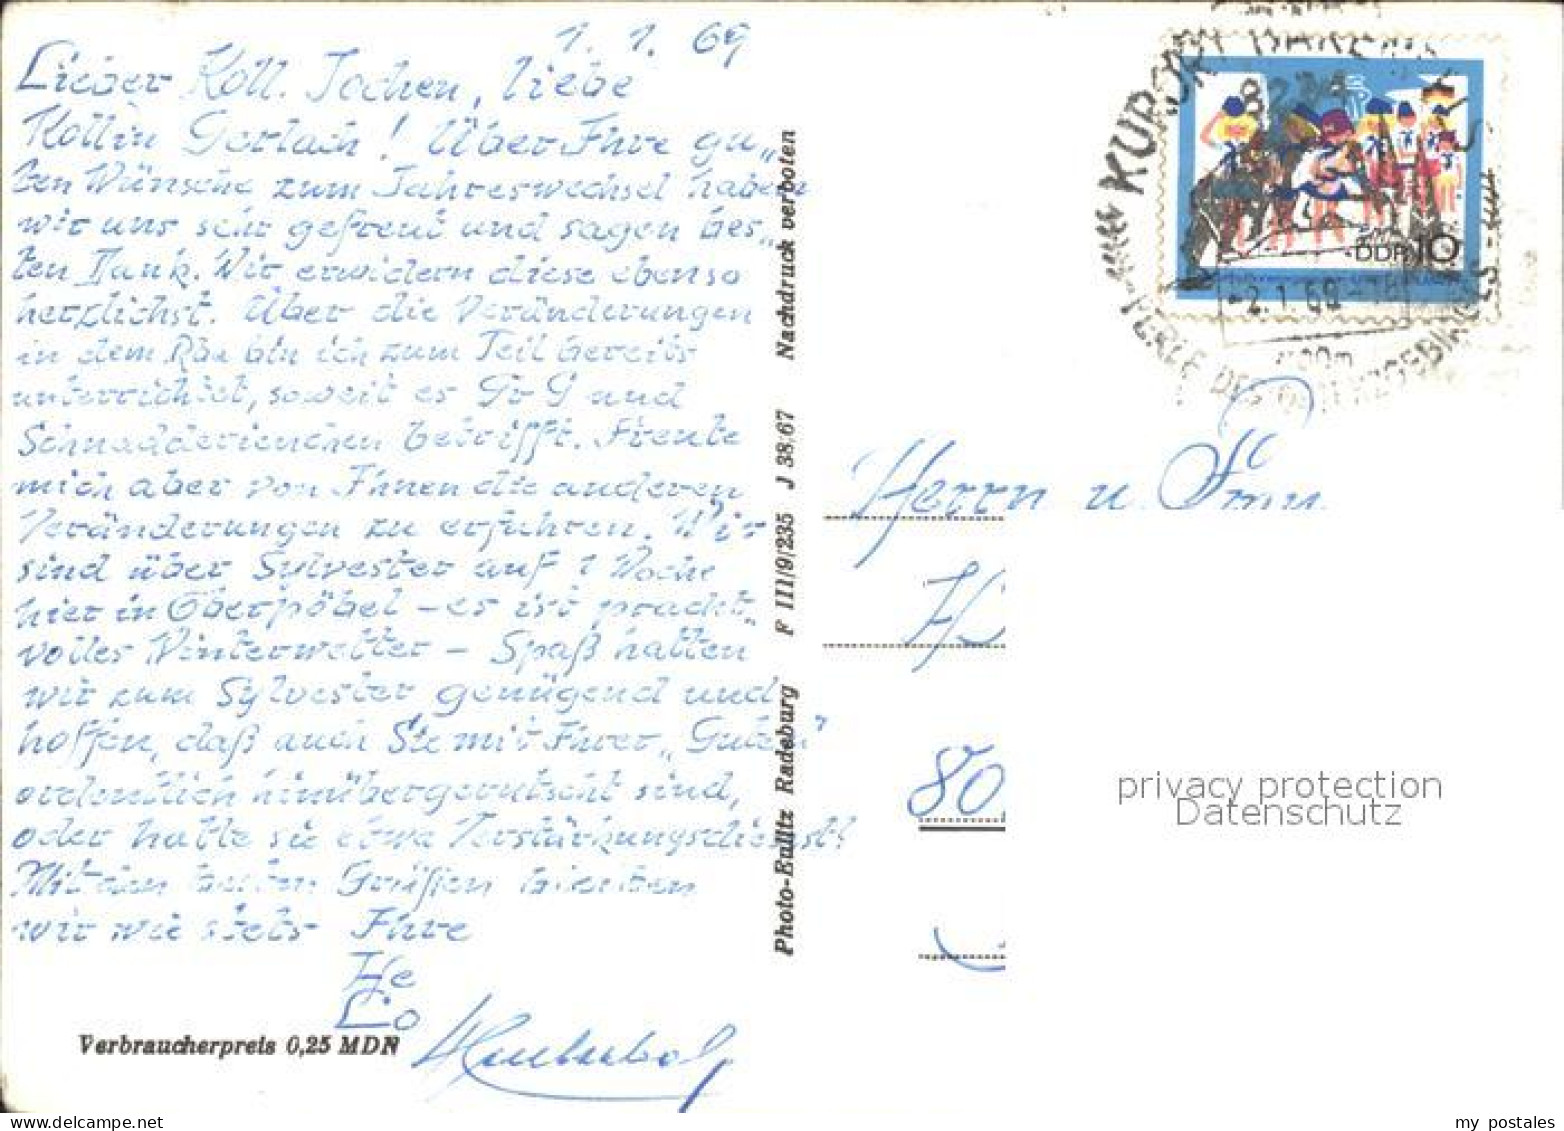 1. 1. 69
Lieber Koll. Jochen, liebe
Kollin Gerlach! Über Ihre gu„
ten Wünsche zum Jahreswechsel haben
wir uns sehr gefreut und sagen bes„
ten Dank. Wir erwidern diese ebenso
herzlichst. Über die Veränderungen
in dem bin ich zum Teil bereits
unterrichtet, soweit es und
betrifft. Freute
mich aber von Ihnen die anderen
Veränderungen zu erfuhren. Wir
sind über Sylvester auf 1 Woche
hier in Oberpöbel – es ist pracht„
volles Winterwetter – Spaß hatten
wir zum Sylvester genügend und
hoffen, daß auch Sie mit Ihrer „Guten"
ordentlich hinübergerutscht sind,
oder hatte sie etwa Verstärkungsdienst?
Mit den besten Grüßen bleiben
wir wie stets Ihre
Verbraucherpreis 0,25 MDN
Photo-Eulitz Radeburg F III/9/235 J 38/67 Nachdruck verboten
KURORT
DDR 10
-2.1.69
PERLE DES OSTERZGEBIRGES
Herrn u. Frau
80
privacy protection
Datenschutz
my postales